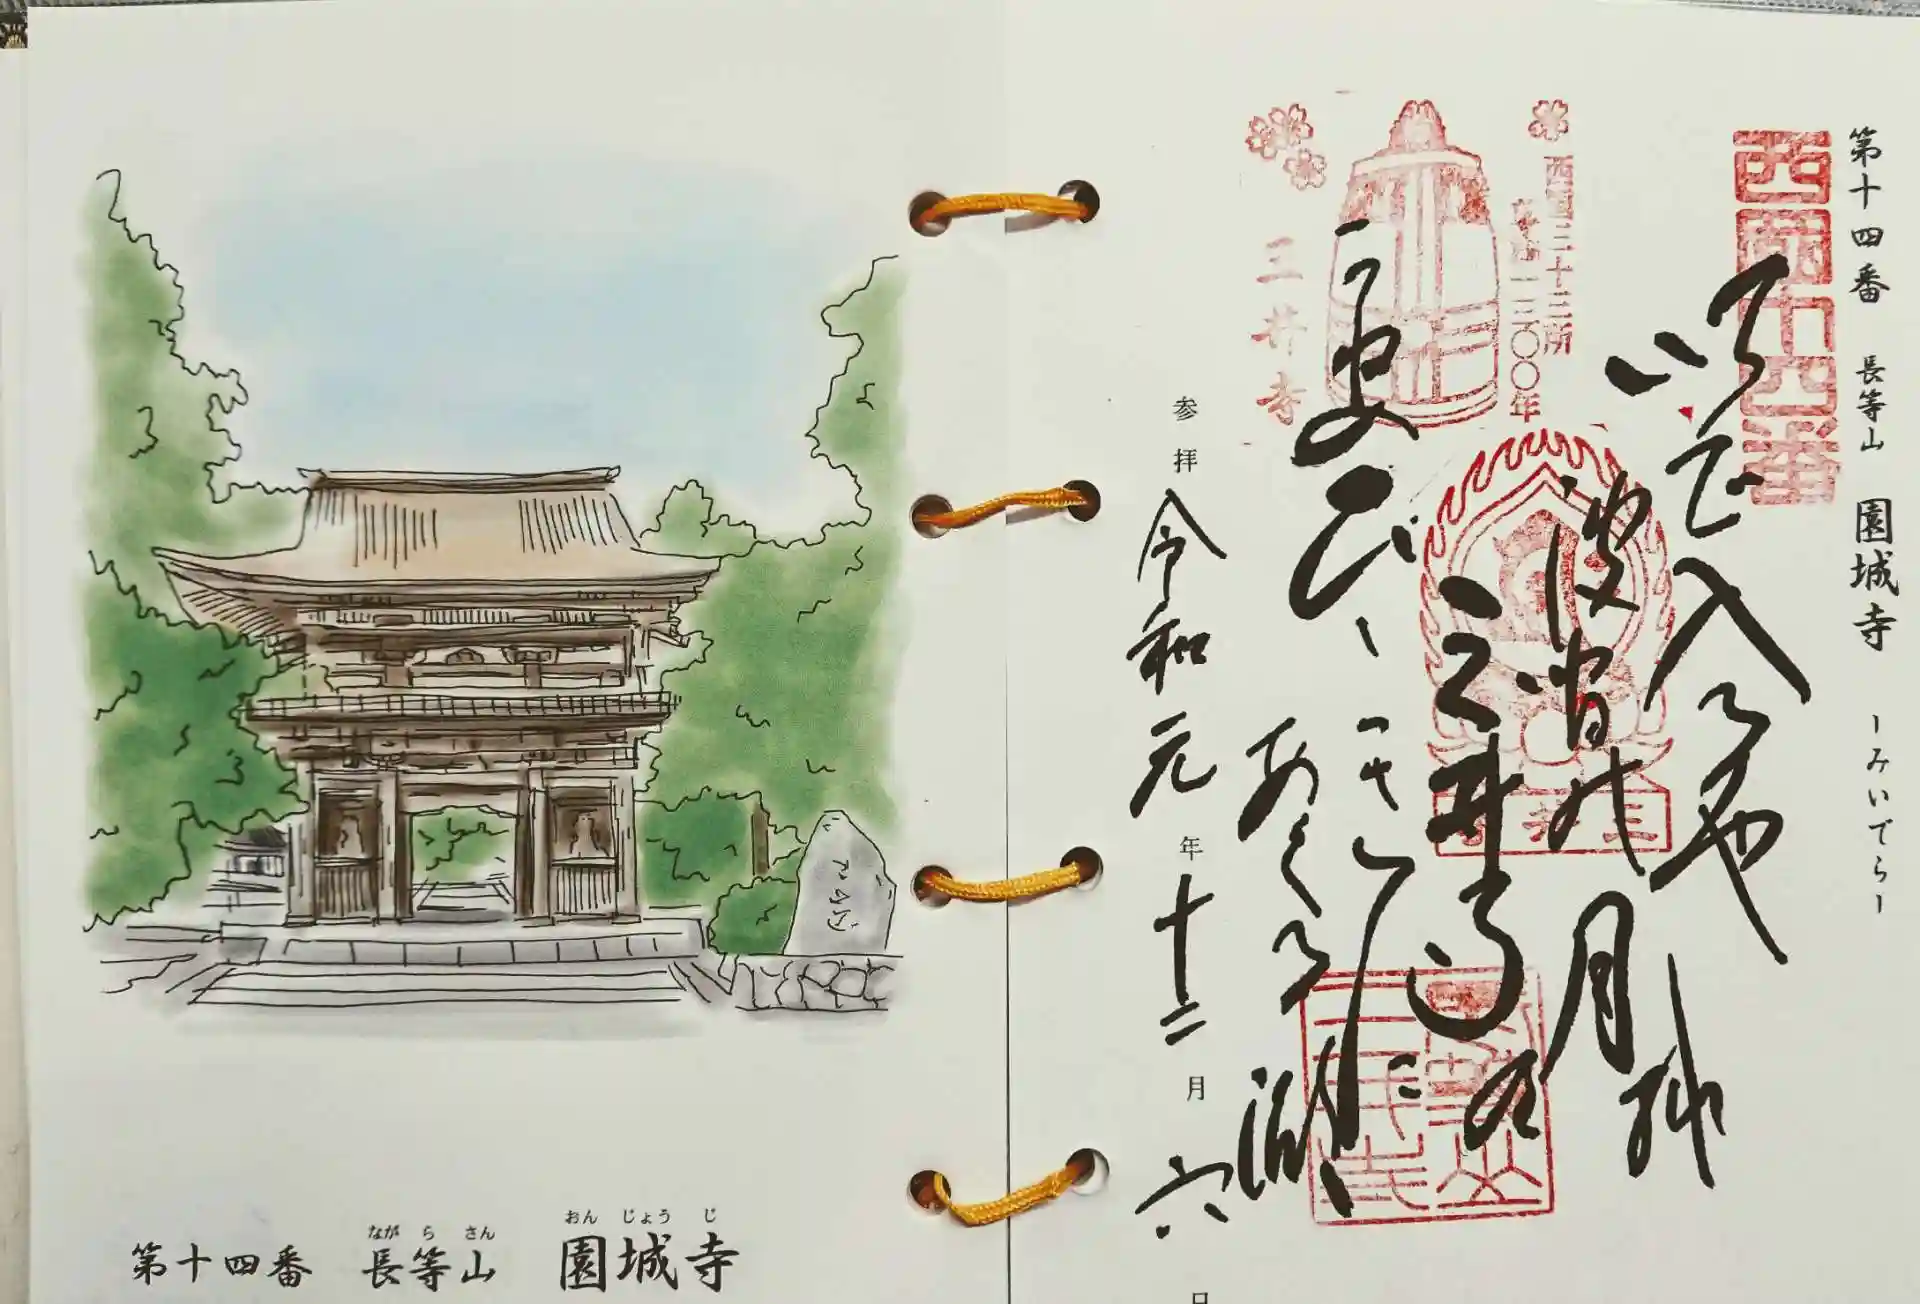 第十四番 長等山 園城寺 －みいでら－
西國十四番
いで入るや
波間の月を
三井寺の
ひゞきに
あくる湖
西国三十三所
草創一三〇〇年
三井寺
三井寺
参拝 令和元年十二月六日
ながらさん おんじょうじ
第十四番 長等山 園城寺